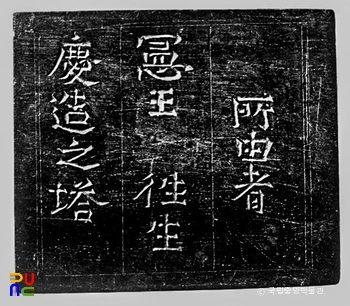 所由者
王 往生
慶造之塔
ⓒ 국립중앙박물관